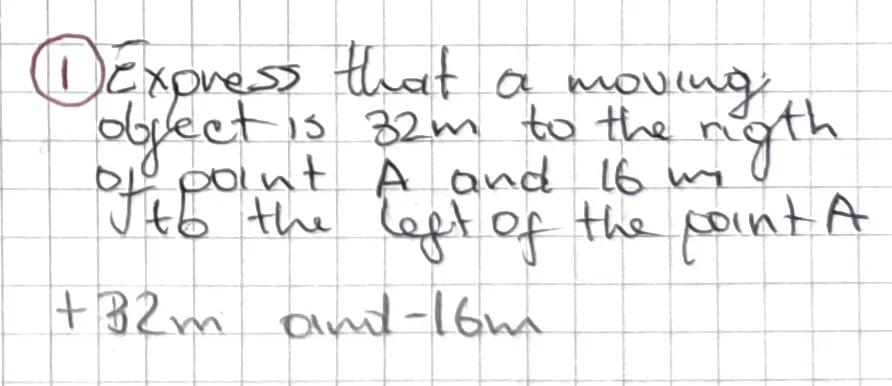 ① Express that a moving
object is 32m to the rigth
of point A and 16 m
to the left of the point A
+32m and -16m